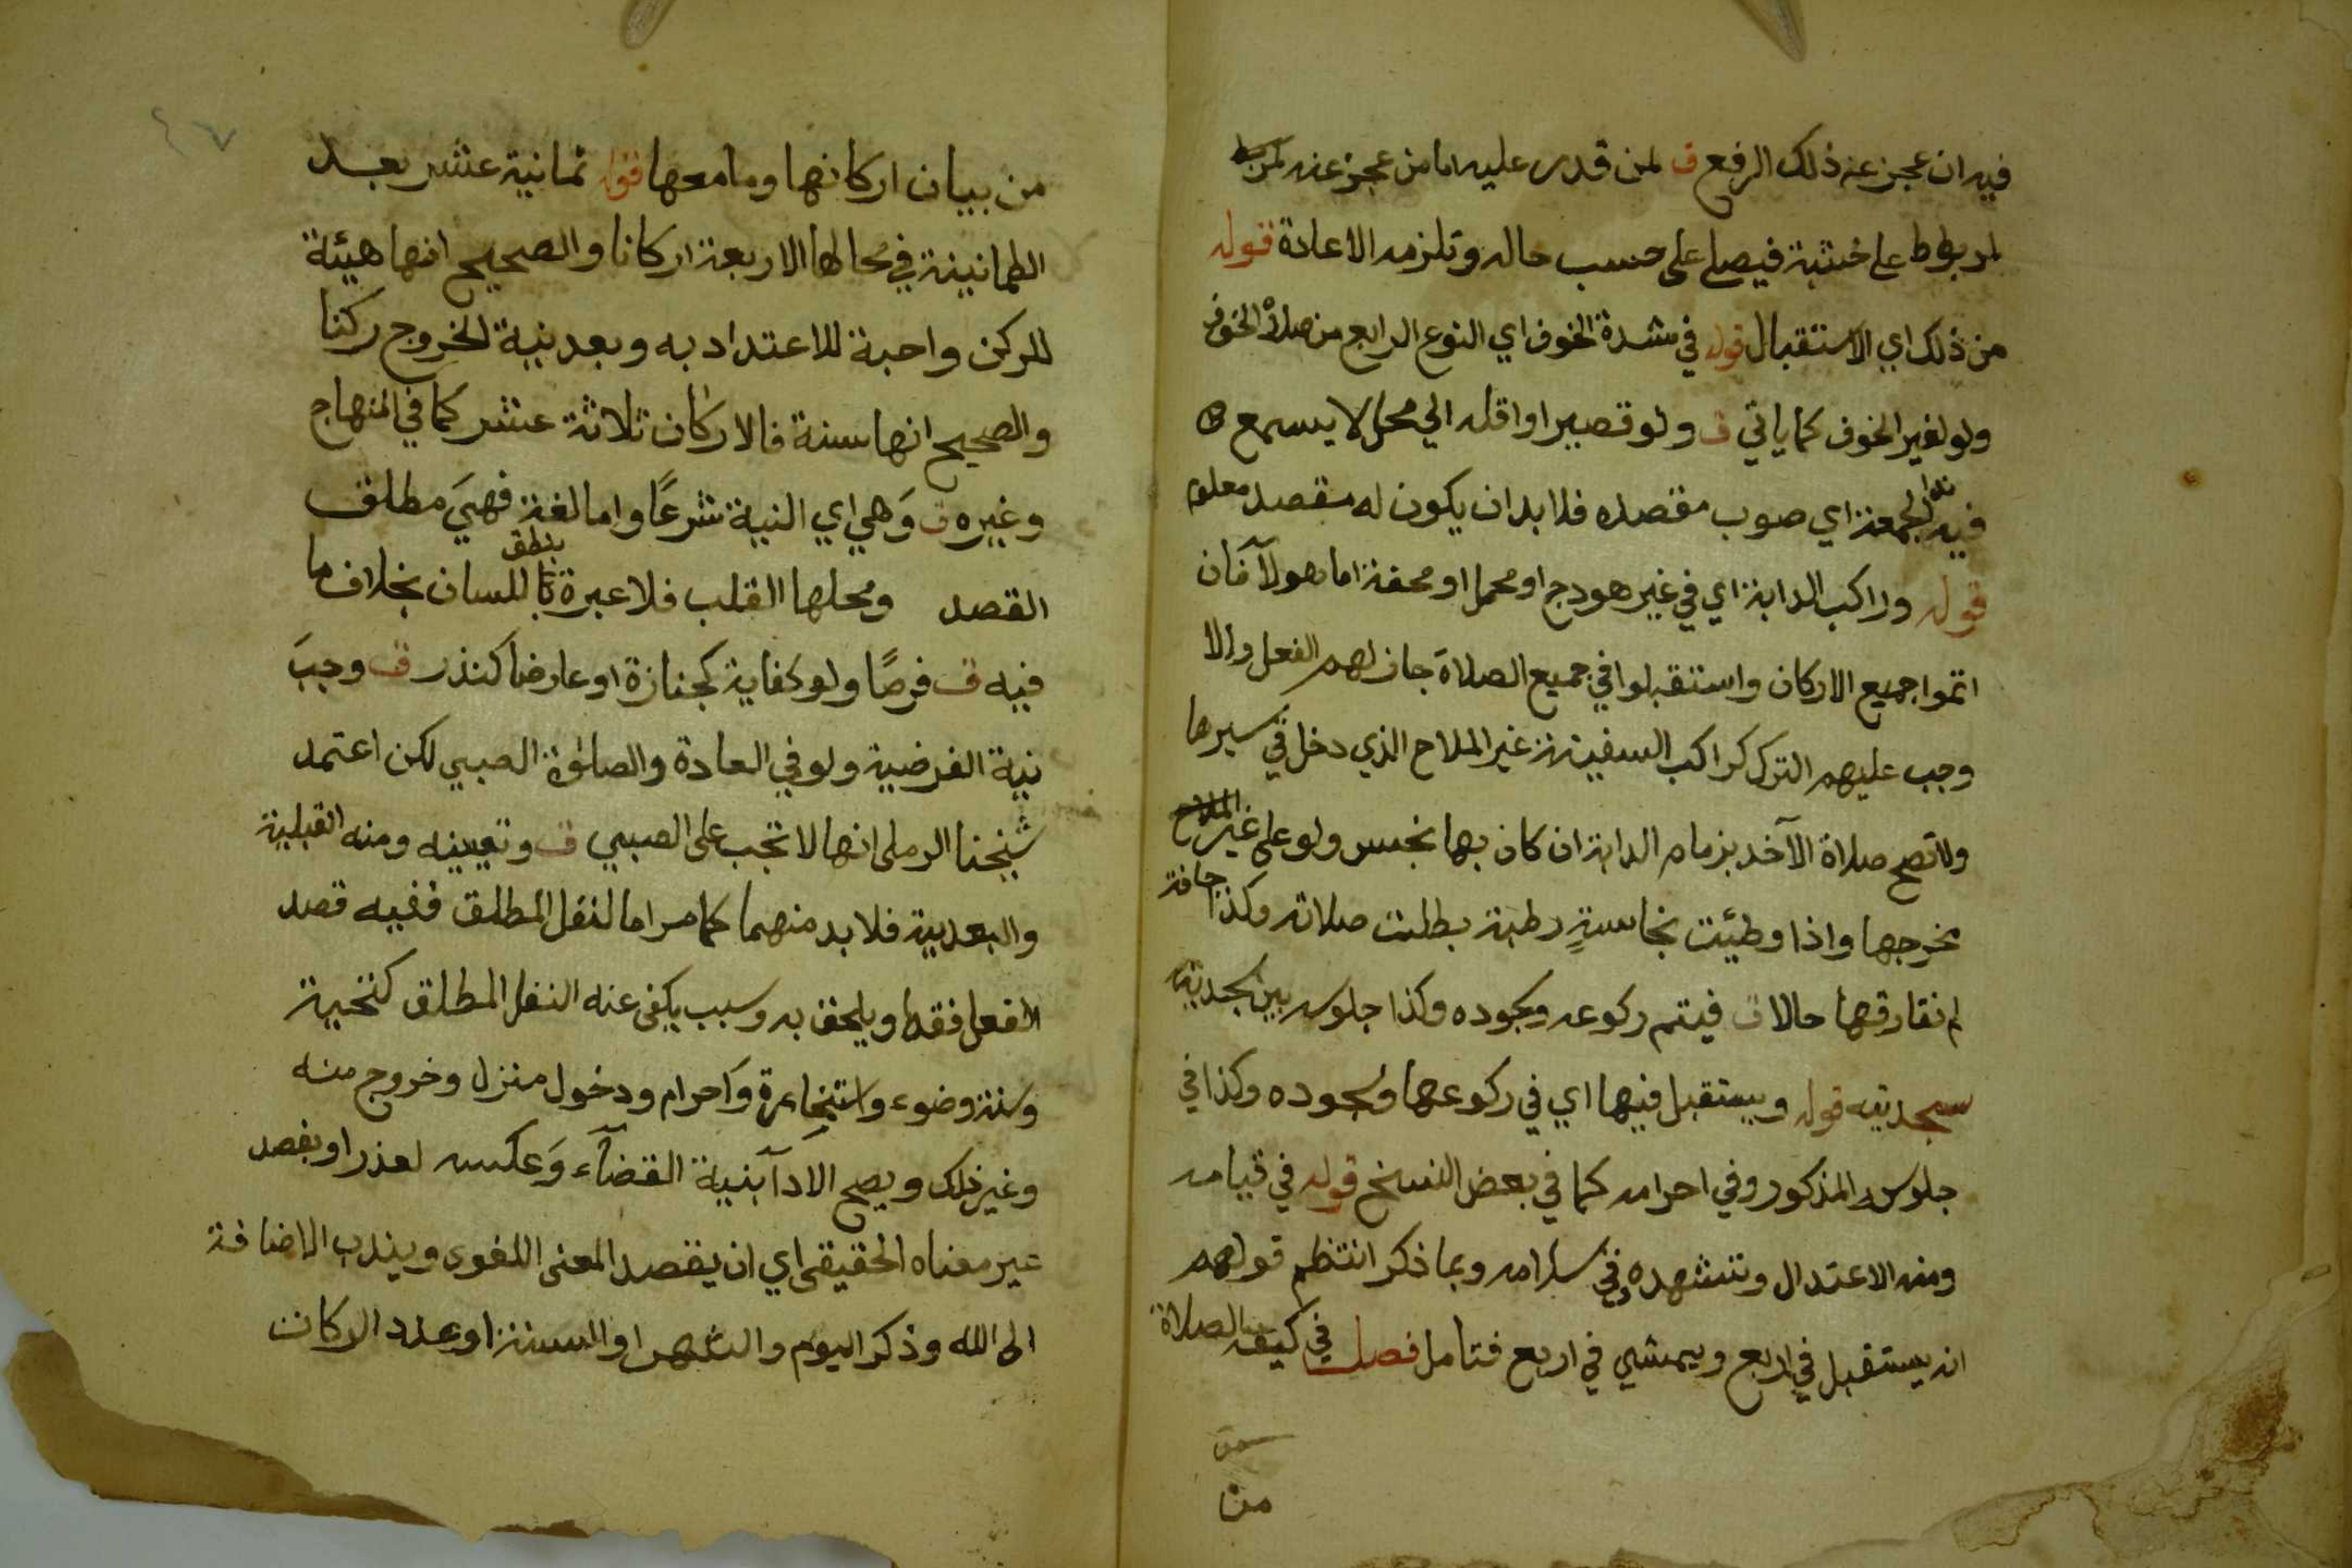 فيه ان عجز عنه ذلك الرفع ق لمن قدر عليه اما من عجز عنه
لمربوط على خشبة فيصلي على حسب حاله وتلزمه الاعادة قوله
من ذلك اي الاستقبال قوله في شدة الخوف اي النوع الرابع من صلاة الخوف
ولو لغير الخوف كما ياتي ق ولو قصيرا واقله الي محل لا يسمع
فيه ندا الجمعة اي صوب مقصده فلا بد ان يكون له مقصد معلوم
قوله وراكب الدابة اي في غير هودج او محمل او محفة اما هولآ فان
اتموا جميع الاركان واستقبلوا في جميع الصلاة جاز لهم الفعل والا
وجب عليهم الترك كراكب السفينة غير الملاح الذي دخل في سيرها
ولا تصح صلاة الآخذ بزمام الدابة ان كان بها نجس ولو على غير
مخرجها واذا وطئت نجاسةٍ رطبة بطلت صلاته وكذا جافة
لم نفارقها حالا ق فيتم ركوعه وسجوده وكذا جلوسه بين سجدتيه
سجدتيه قوله ويستقبل فيها اي في ركوعها وسجوده وكذا في
جلوسه المذكور وفي احرامه كما في بعض النسخ قوله في قيامه
ومنه الاعتدال وتشهده وفي سلامه وبما ذكر انتظم قولهم
انه يستقبل في اربع ويمشي في اربع فتامل فصل في كيفية الصلاة
من
٤٧
من بيان اركانها وما معها قوله ثمانية عشر بعد
الطمانينة في محالها الاربعة اركانا والصحيح انها هيئة
للركن واحبة للاعتداد به وبعد نية الخروج ركنا
والصحيح انها سنة فالاركان ثلاثة عشر كما في المنهاج
وغيره ق وَهي اي النية شرعًا واما لغة فهيَ مطلق
القصد ومحلها القلب فلا عبرة بنطق باللسان بخلاف ما
فيه ق فرضًا ولو كفاية كجنازة او عارضا كنذر ق وجبَ
نية الفرضية ولو في العادة والصلوة الصبي لكن اعتمد
شيخنا الرملى انها لا تجب على الصبي ق وتعيينه ومنه القبلية
والبعدية فلا بد منهما كما مر اما لنفل المطلق ففيه قصد
الفعل فقط ويلحق به وسبب يكفى عنه النفل المطلق كتحية
وسنة وضوء واستخارة وَاحرام ودخول منزل وخروج منه
وغير ذلك ويصح الادآ بنية القضآء وَعكسه لعذر او بقصد
غير معناه الحقيقى اي ان يقصد المعنى اللغوى ويندب الاضافة
الى الله وذكر اليوم والشهر او السنة او عدد الركات